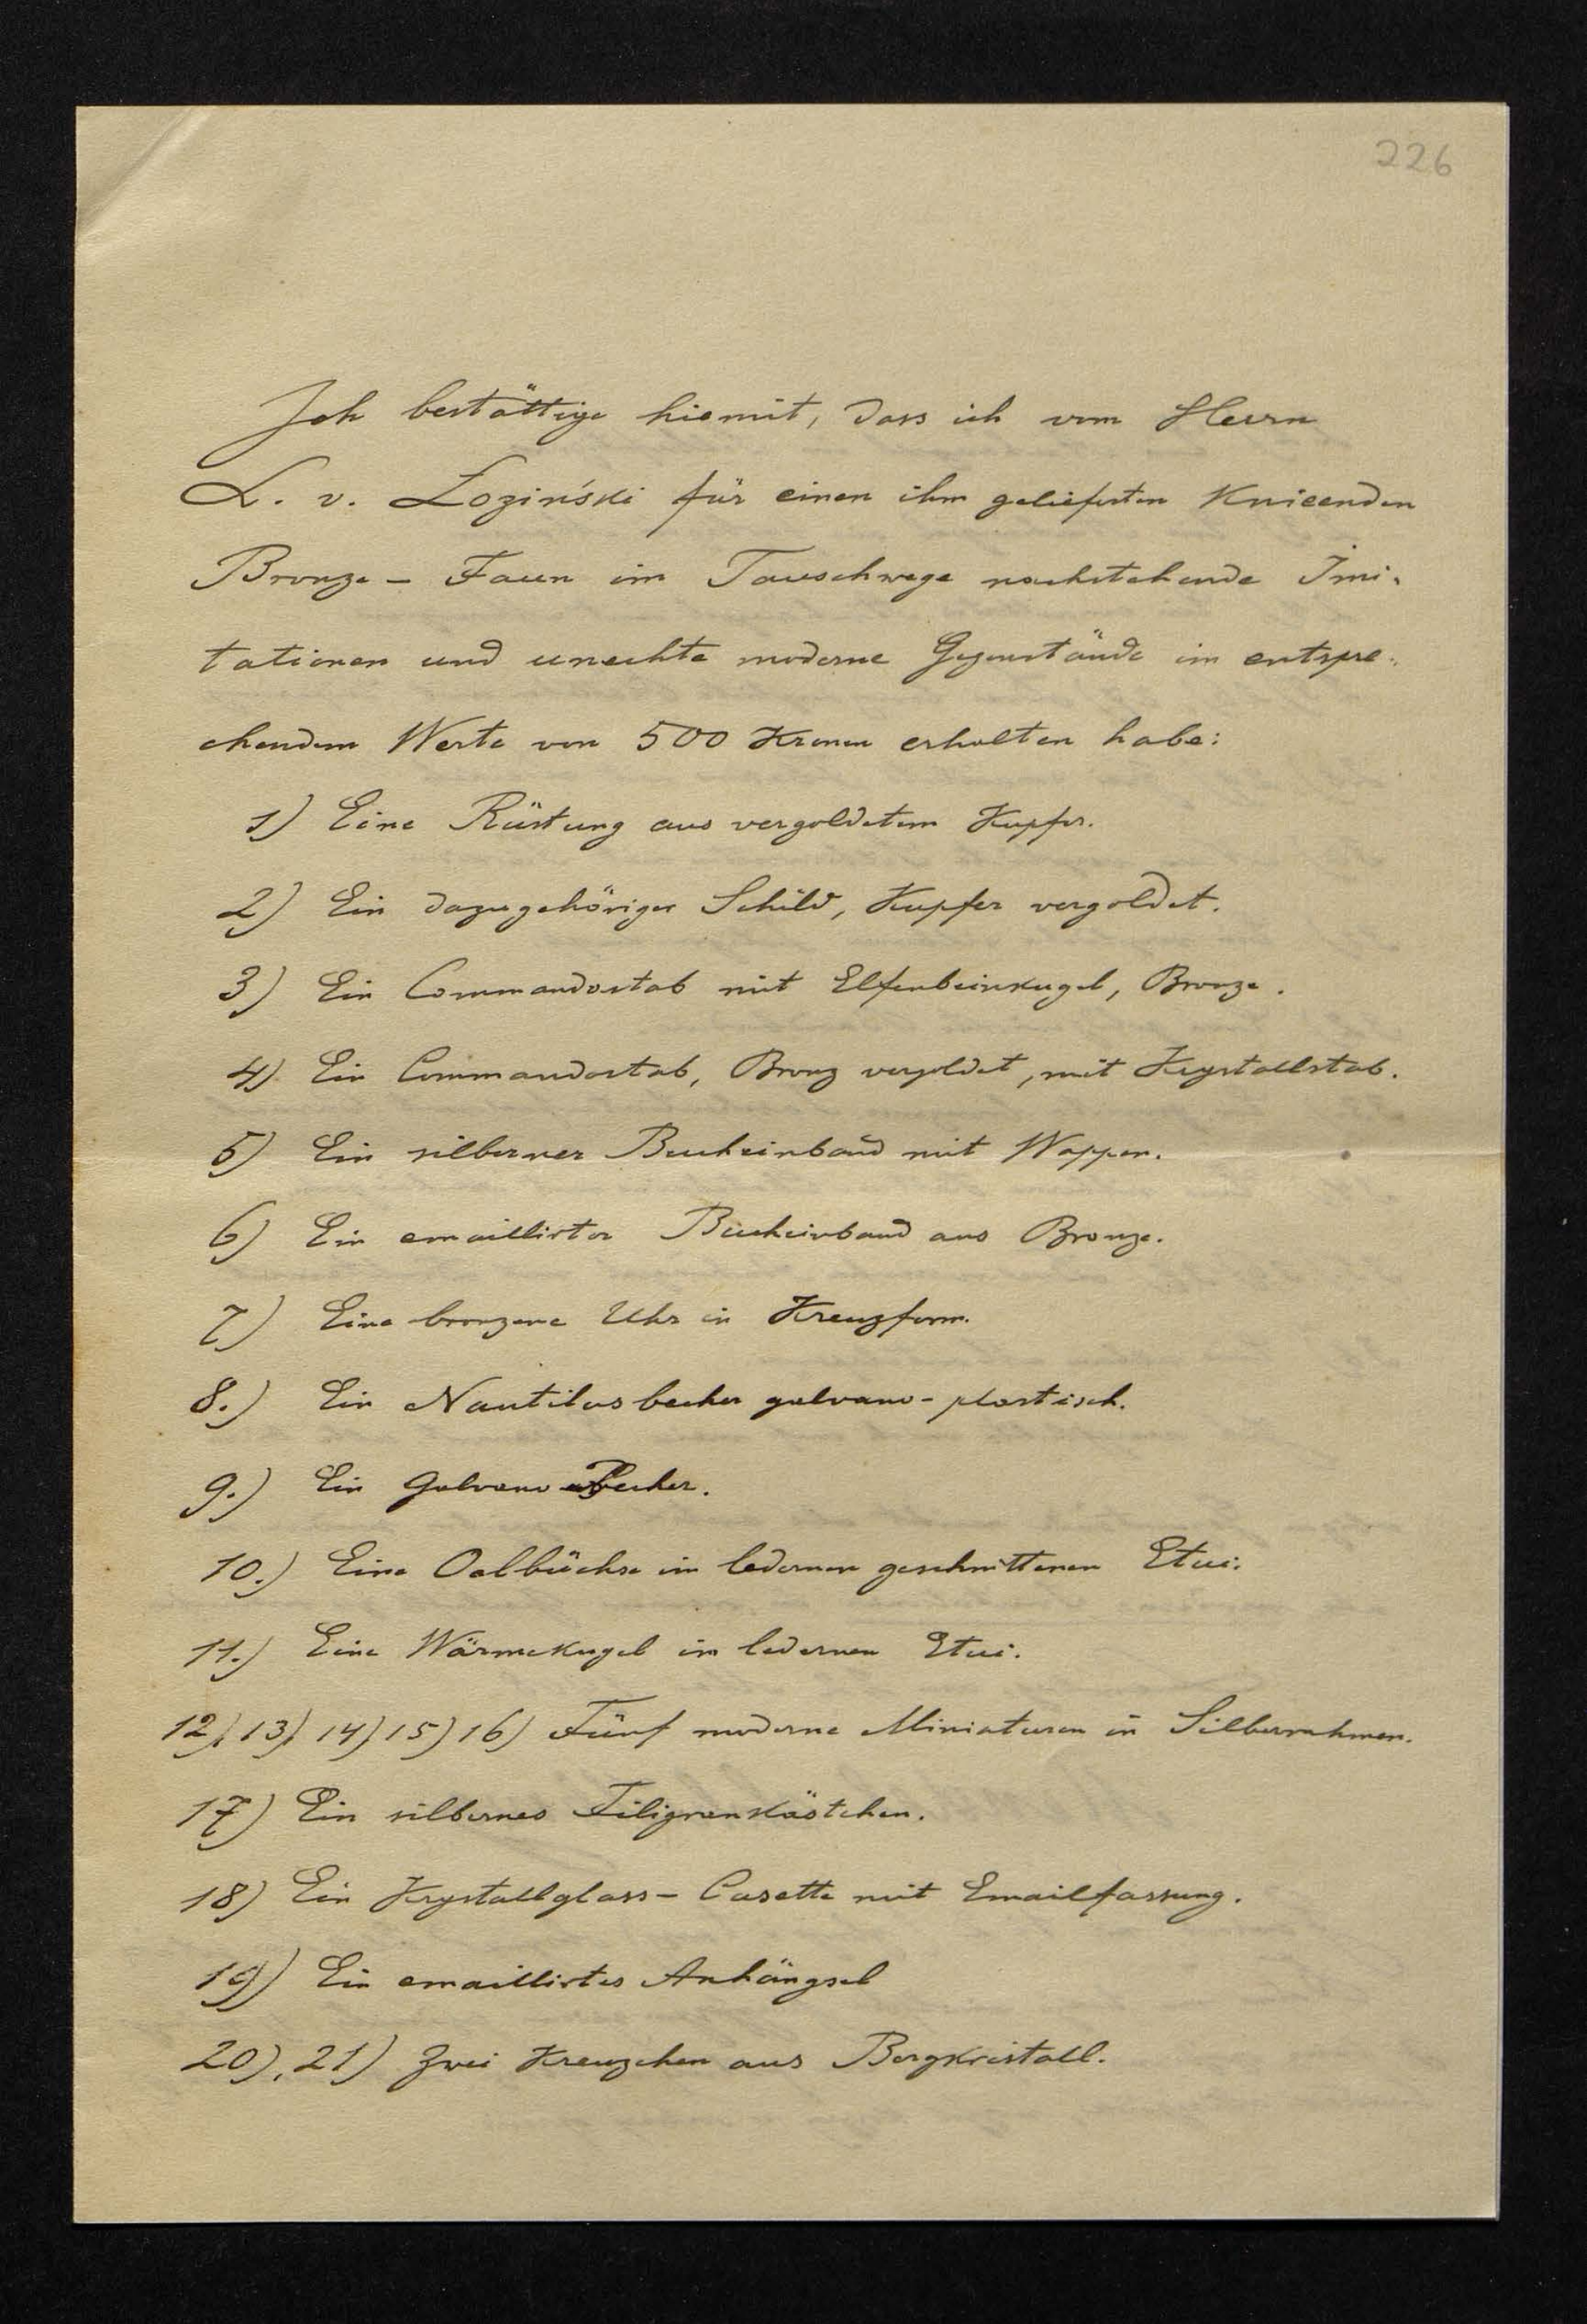 226
Ich bestättige hiemit, dass ich vom Herrn
L. v. Łoziński für einen ihm gelieferten Knieenden
Bronze - Faun im Tauschwege nachstehende Imi-
tationen und unechte moderne Gegenstände im entspre-
chendem Werte von 500 Kronen erhalten habe:
1) Eine Rüstung aus vergoldetem Kupfer.
2) Ein dazugehöriger Schild, Kupfer vergoldet.
3) Ein Commandostab mit Elfenbeinkugel, Bronze.
4) Ein Commandostab, Bronz vergoldet, mit Krystallstab.
5) Ein silberner Bucheinband mit Wappen.
6) Ein emaillirter Bucheinband aus Bronze.
7) Eine bronzene Uhr in Kreuzform.
8.) Ein Nautilusbecher galvano-plastisch.
9.) Ein Galvano Becher.
10.) Eine Oelbüchse im ledernen geschnittenen Etui.
11.) Eine Wärmekugel im ledernen Etui.
12), 13), 14) 15) 16) Fünf moderne Miniaturen in Silberrahmen.
17) Ein silbernes Filigrankästchen.
18) Ein Krystallglass - Casette mit Emailfassung.
19) Ein emaillirtes Anhängsel
20), 21) Zwei Kreuzchen aus Bergkristall.